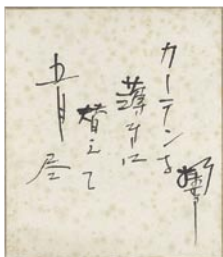 カーテンを
薄手に
替えて
五月